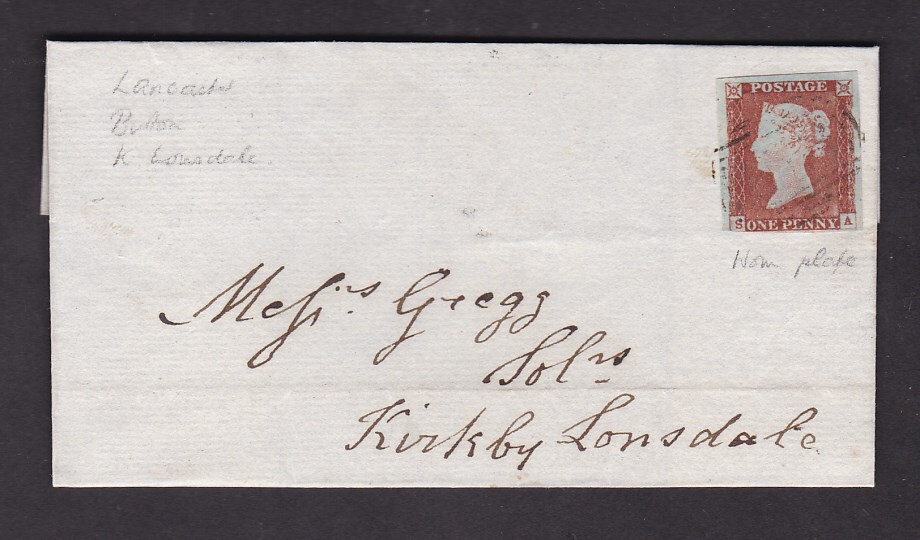 Lancaster
Burton
K Lonsdale.
POSTAGE
S ONE PENNY A
Worn plate
Messrs Gregg
Solrs
Kirkby Lonsdale